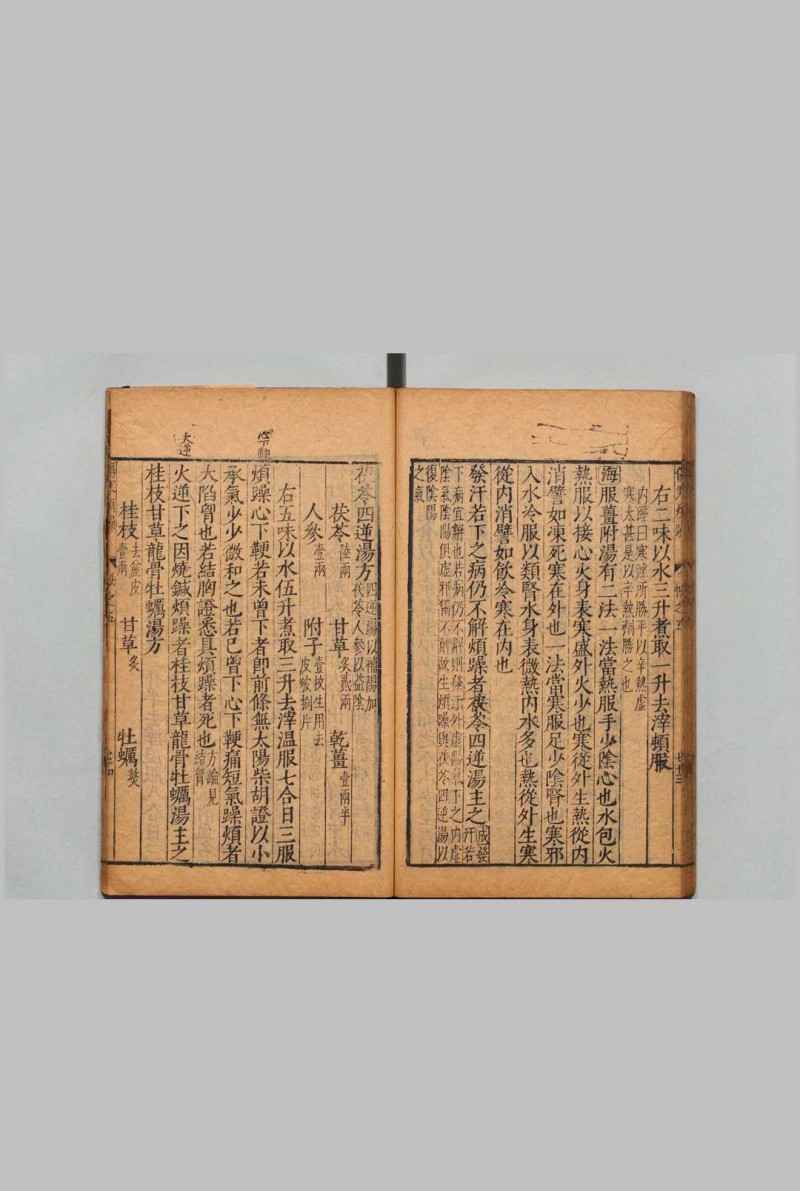 右二味以水三升煮取一升去滓頓服
内經曰寒淫所勝平以辛熱虚
寒太甚是以辛熱劑勝之也
海服薑附湯有二法一法當熱服手少陰心也水包火
熱服以接心火身表寒盛外火少也寒從外生熱從内
消譬如凍死寒在外也一法當寒服足少陰腎也寒邪
入水冷服以類腎水身表微熱内水多也熱從外生寒
從内消譬如飲冷寒在内也
發汗若下之病仍不解煩躁者茯苓四逆湯主之
成發汗若
下病宜解也若病仍不解則發汗外虚陽氣下之内虚
陰氣陰陽俱虚邪獨不解故生煩躁與茯苓四逆湯以
復陰陽
之氣
茯苓四逆湯方
四逆湯以補陽加
茯苓人參以益陰
茯苓陸兩 甘草炙貳兩 乾薑壹兩半
人參壹兩 附子壹枚生用去皮破捌片
右五味以水伍升煮取三升去滓温服七合日三服
心下鞕
煩躁心下鞕若未曾下者即前條無太陽柴胡證以小
承氣少少微和之也若已曾下心下鞕痛短氣躁煩者
大陷胷也若結胸證悉具煩躁者死也
方論見
結胷
火逆
火逆下之因燒鍼煩躁者桂枝甘草龍骨牡蠣湯主之
桂枝甘草龍骨牡蠣湯方
桂枝去麄皮壹兩 甘草炙 牡蠣熬